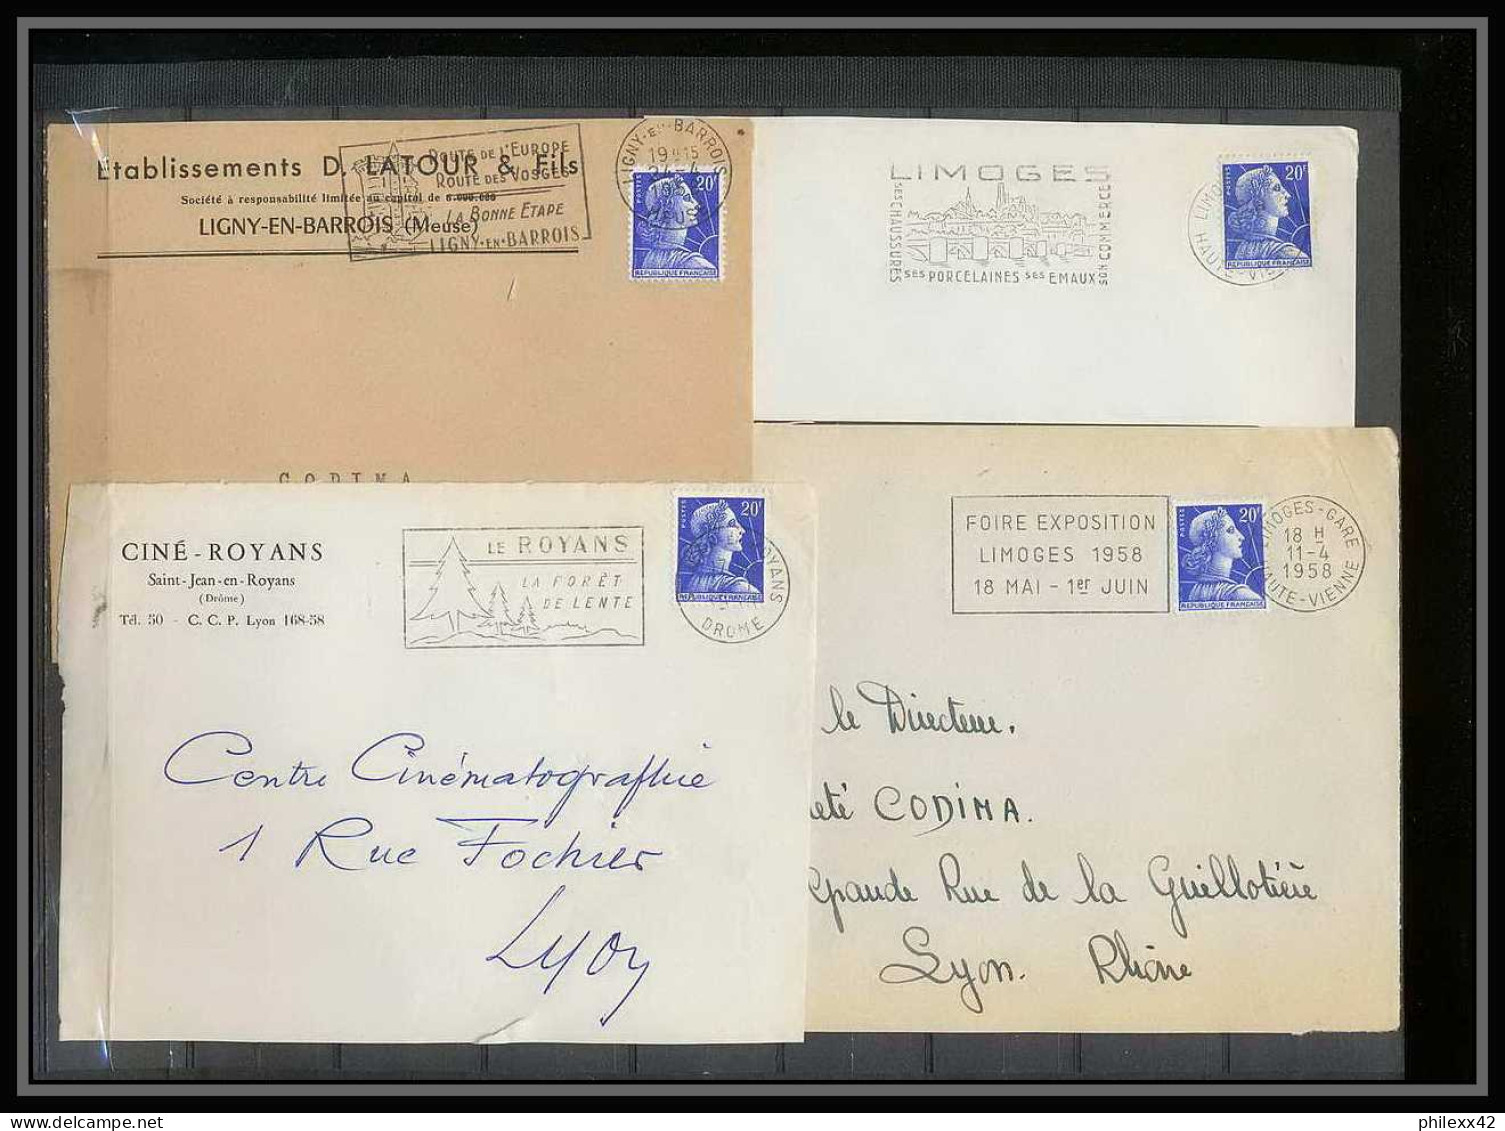 Etablissements D. LATOUR & Fils
Société à responsabilité limitée au capital de
LIGNY-EN-BARROIS (Meuse)
ROUTE DE L'EUROPE
ROUTE DES VOSGES
LA BONNE ETAPE
LIGNY-EN-BARROIS
LIGNY-EN-BARROIS
19 H 15
MEUSE
POSTES
20F
REPUBLIQUE FRANÇAISE
CODIMA
LIMOGES
SES CHAUSSURES
SES PORCELAINES SES EMAUX
SON COMMERCE
HAUTE-VIENNE
POSTES
20F
REPUBLIQUE FRANÇAISE
CINÉ - ROYANS
Saint-Jean-en-Royans
(Drôme)
Tél. 50 - C. C. P. Lyon 168-58
LE ROYANS
LA FORÊT
DE LENTE
POSTES
20F
REPUBLIQUE FRANÇAISE
ROYANS
DROME
Centre Cinématographie
1 Rue Fochier
Lyon
FOIRE EXPOSITION
LIMOGES 1958
18 MAI - 1er JUIN
POSTES
20F
REPUBLIQUE FRANÇAISE
LIMOGES-GARE
18 H
11-4
1958
HAUTE-VIENNE
le Directeur.
ieté CODIMA.
Grande Rue de la Guillotière
Lyon. Rhône
philexx42